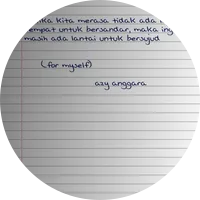 kita merasa tidak ada
untuk bersandar, maka
masih ada lantai untuk bersujud
(for myself)
azy anggara